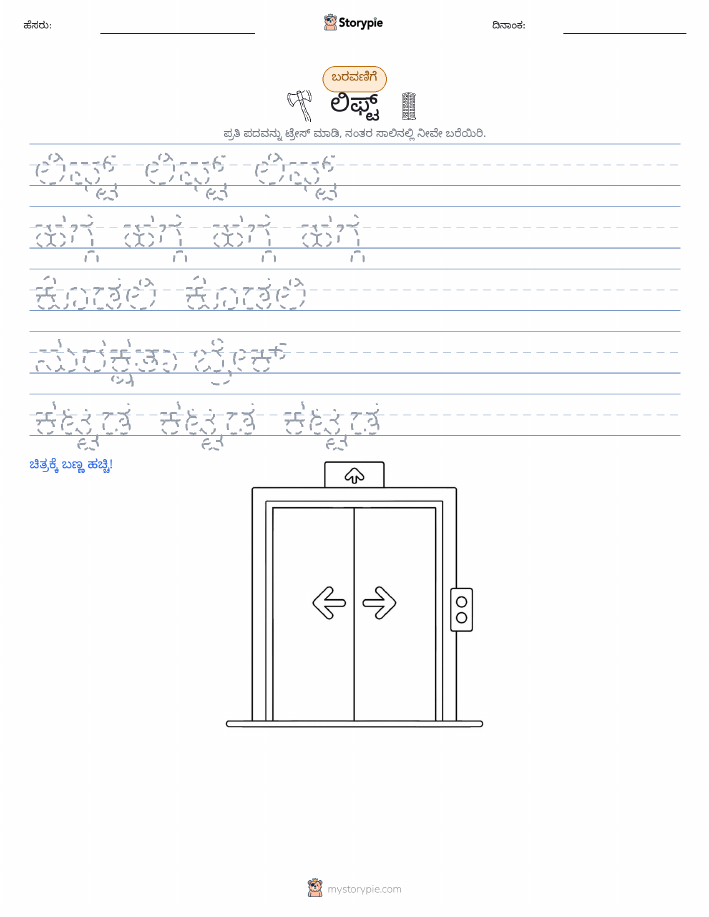 ಹೆಸರು:
Storypie
ದಿನಾಂಕ:
ಬರವಣಿಗೆ
ಲಿಫ್ಟ್
ಪ್ರತಿ ಪದವನ್ನು ಟ್ರೇಸ್ ಮಾಡಿ, ನಂತರ ಸಾಲಿನಲ್ಲಿ ನೀವೇ ಬರೆಯಿರಿ.
ಲಿಫ್ಟ್ ಲಿಫ್ಟ್ ಲಿಫ್ಟ್
ಹಗ್ಗ ಹಗ್ಗ ಹಗ್ಗ ಹಗ್ಗ
ಕೊಡಲಿ ಕೊಡಲಿ
ಸುರಕ್ಷತಾ ಬ್ರೇಕ್
ಕಟ್ಟಡ ಕಟ್ಟಡ ಕಟ್ಟಡ
ಚಿತ್ರಕ್ಕೆ ಬಣ್ಣ ಹಚ್ಚಿ!
mystorypie.com